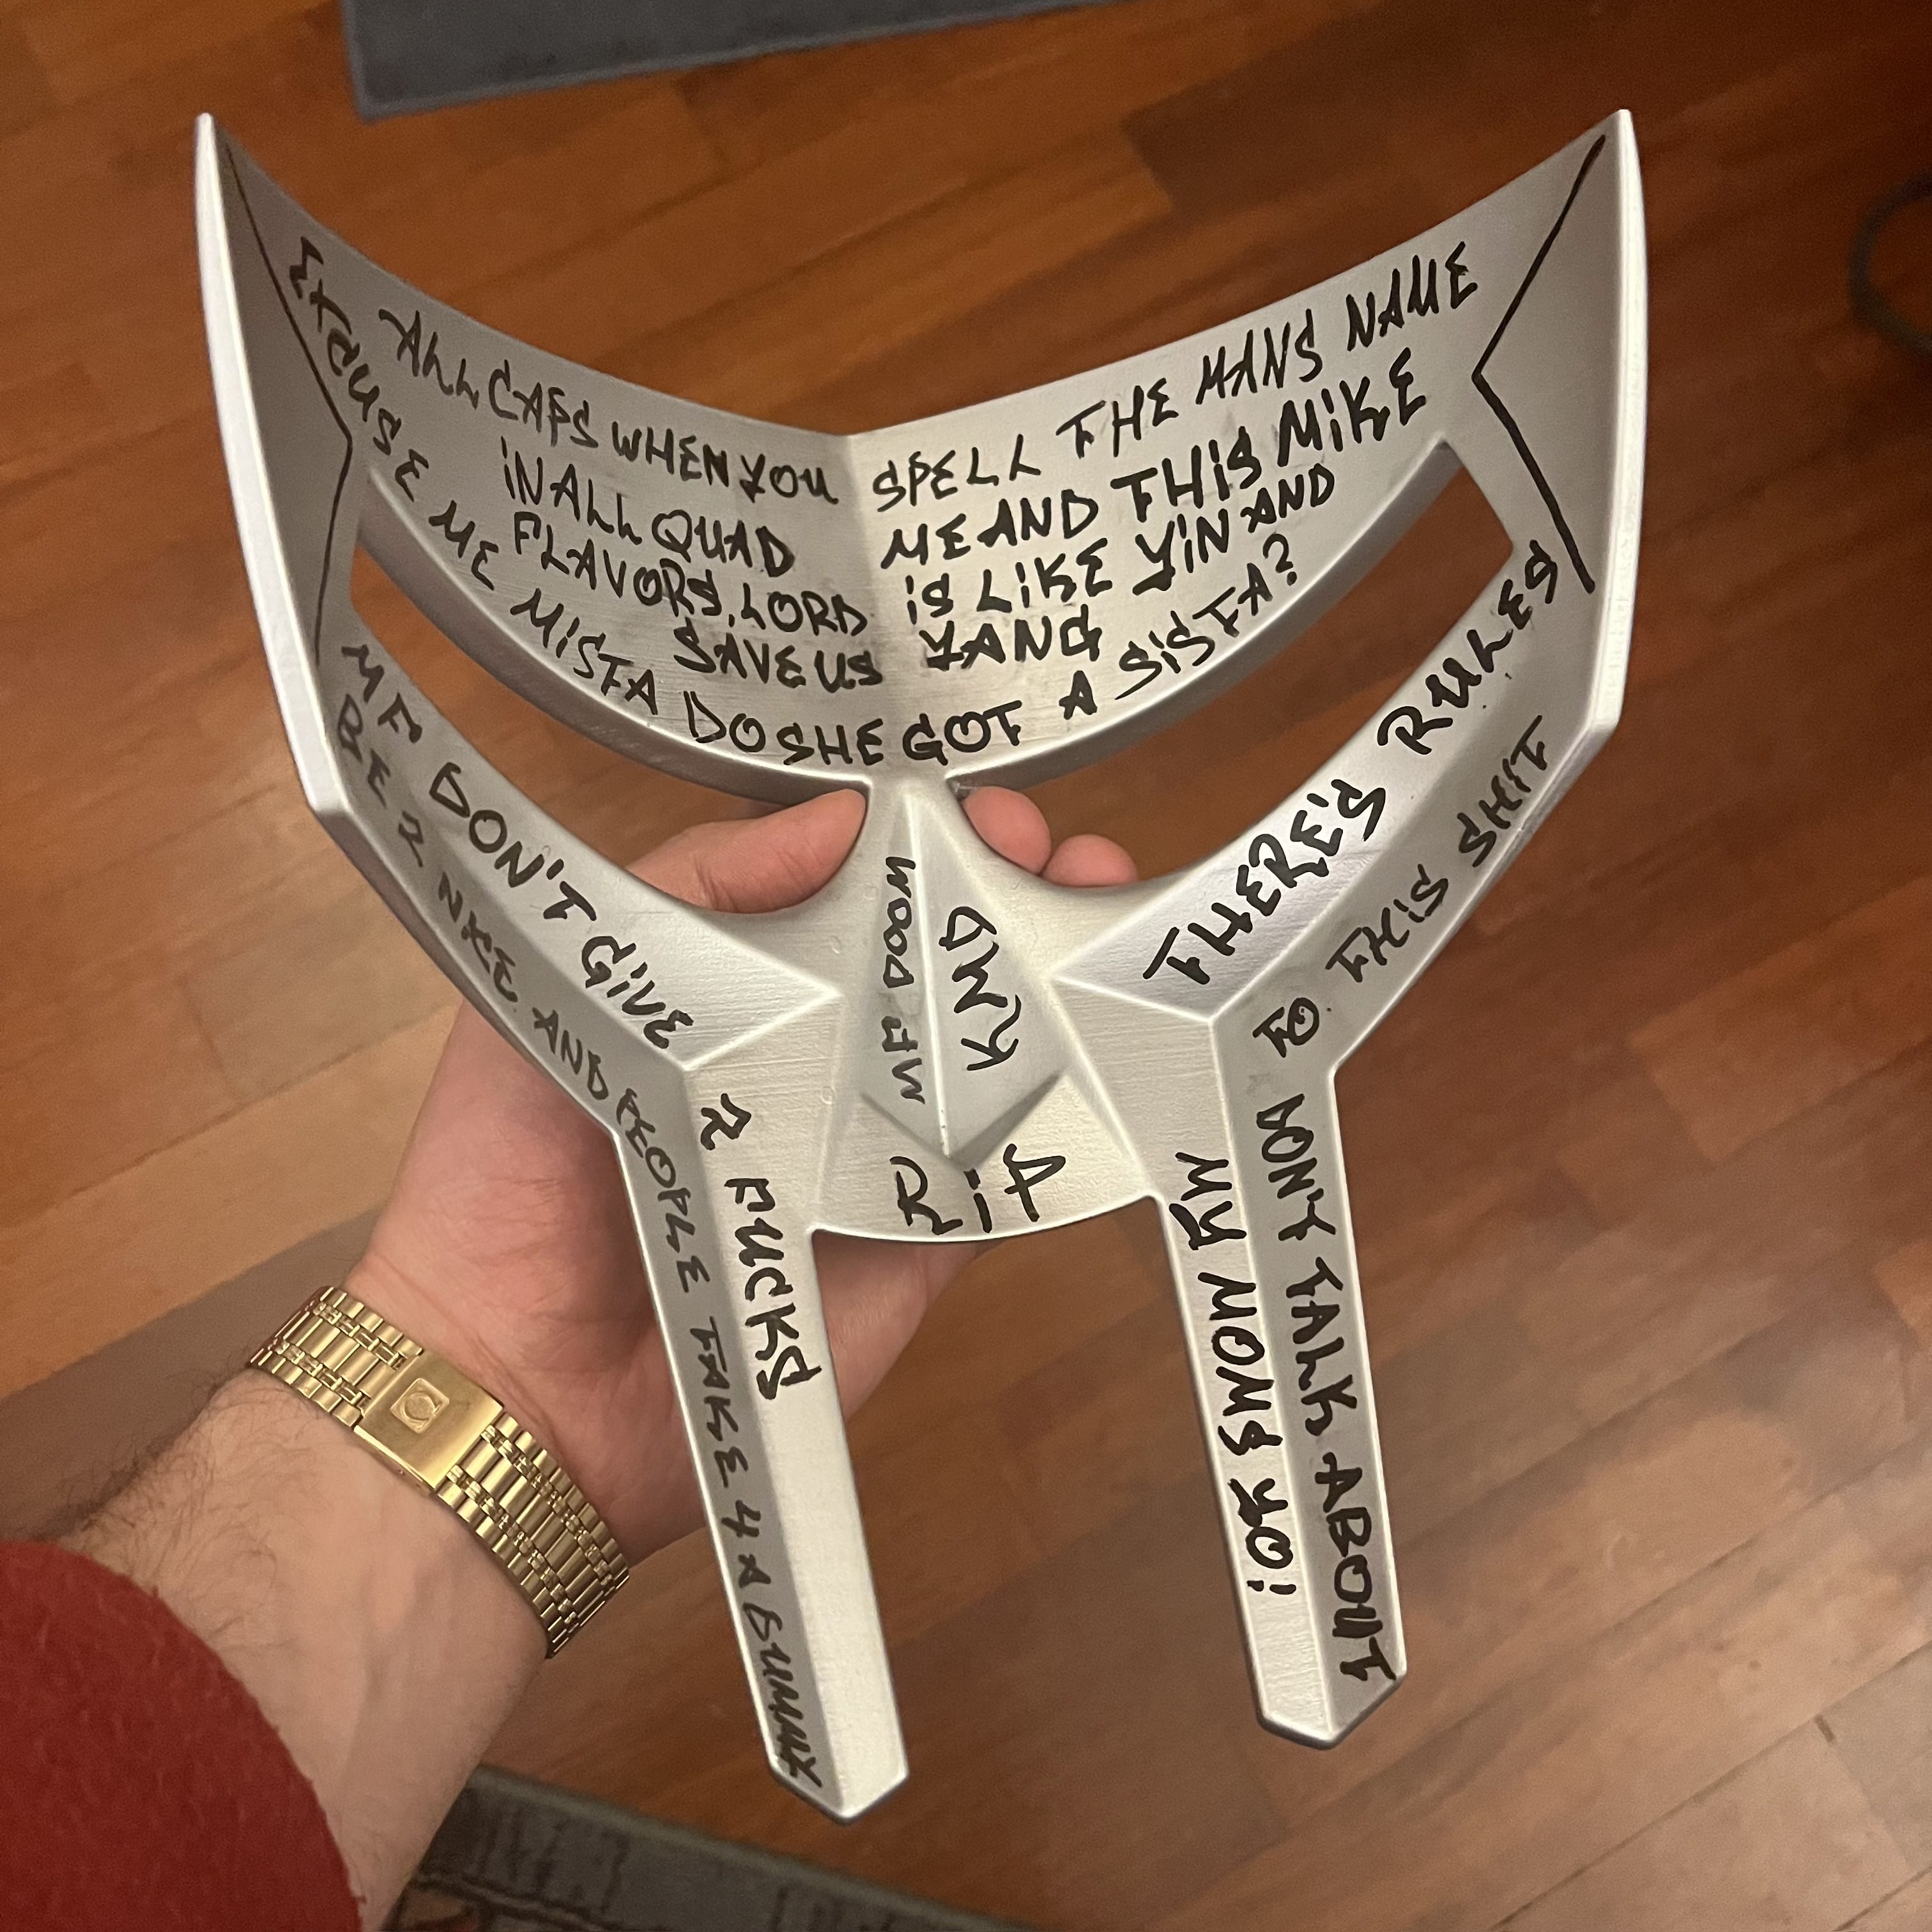 ALL CAPS WHEN YOU SPELL THE MANS NAME
IN ALL QUAD
FLAVORS, LORD
SAVE US
ME AND THIS MIKE
IS LIKE YIN AND
YANG
EXCUSE ME MISTA DO SHE GOT A SISTA?
MF DON'T GIVE
2 FUCKS
BE 2 NICE AND PEOPLE TAKE 4 A DUMMY
MF DOOM
KMD
RIP
THERE'S RULES
TO THIS SHIT
DON'T TALK ABOUT
MY MOMS